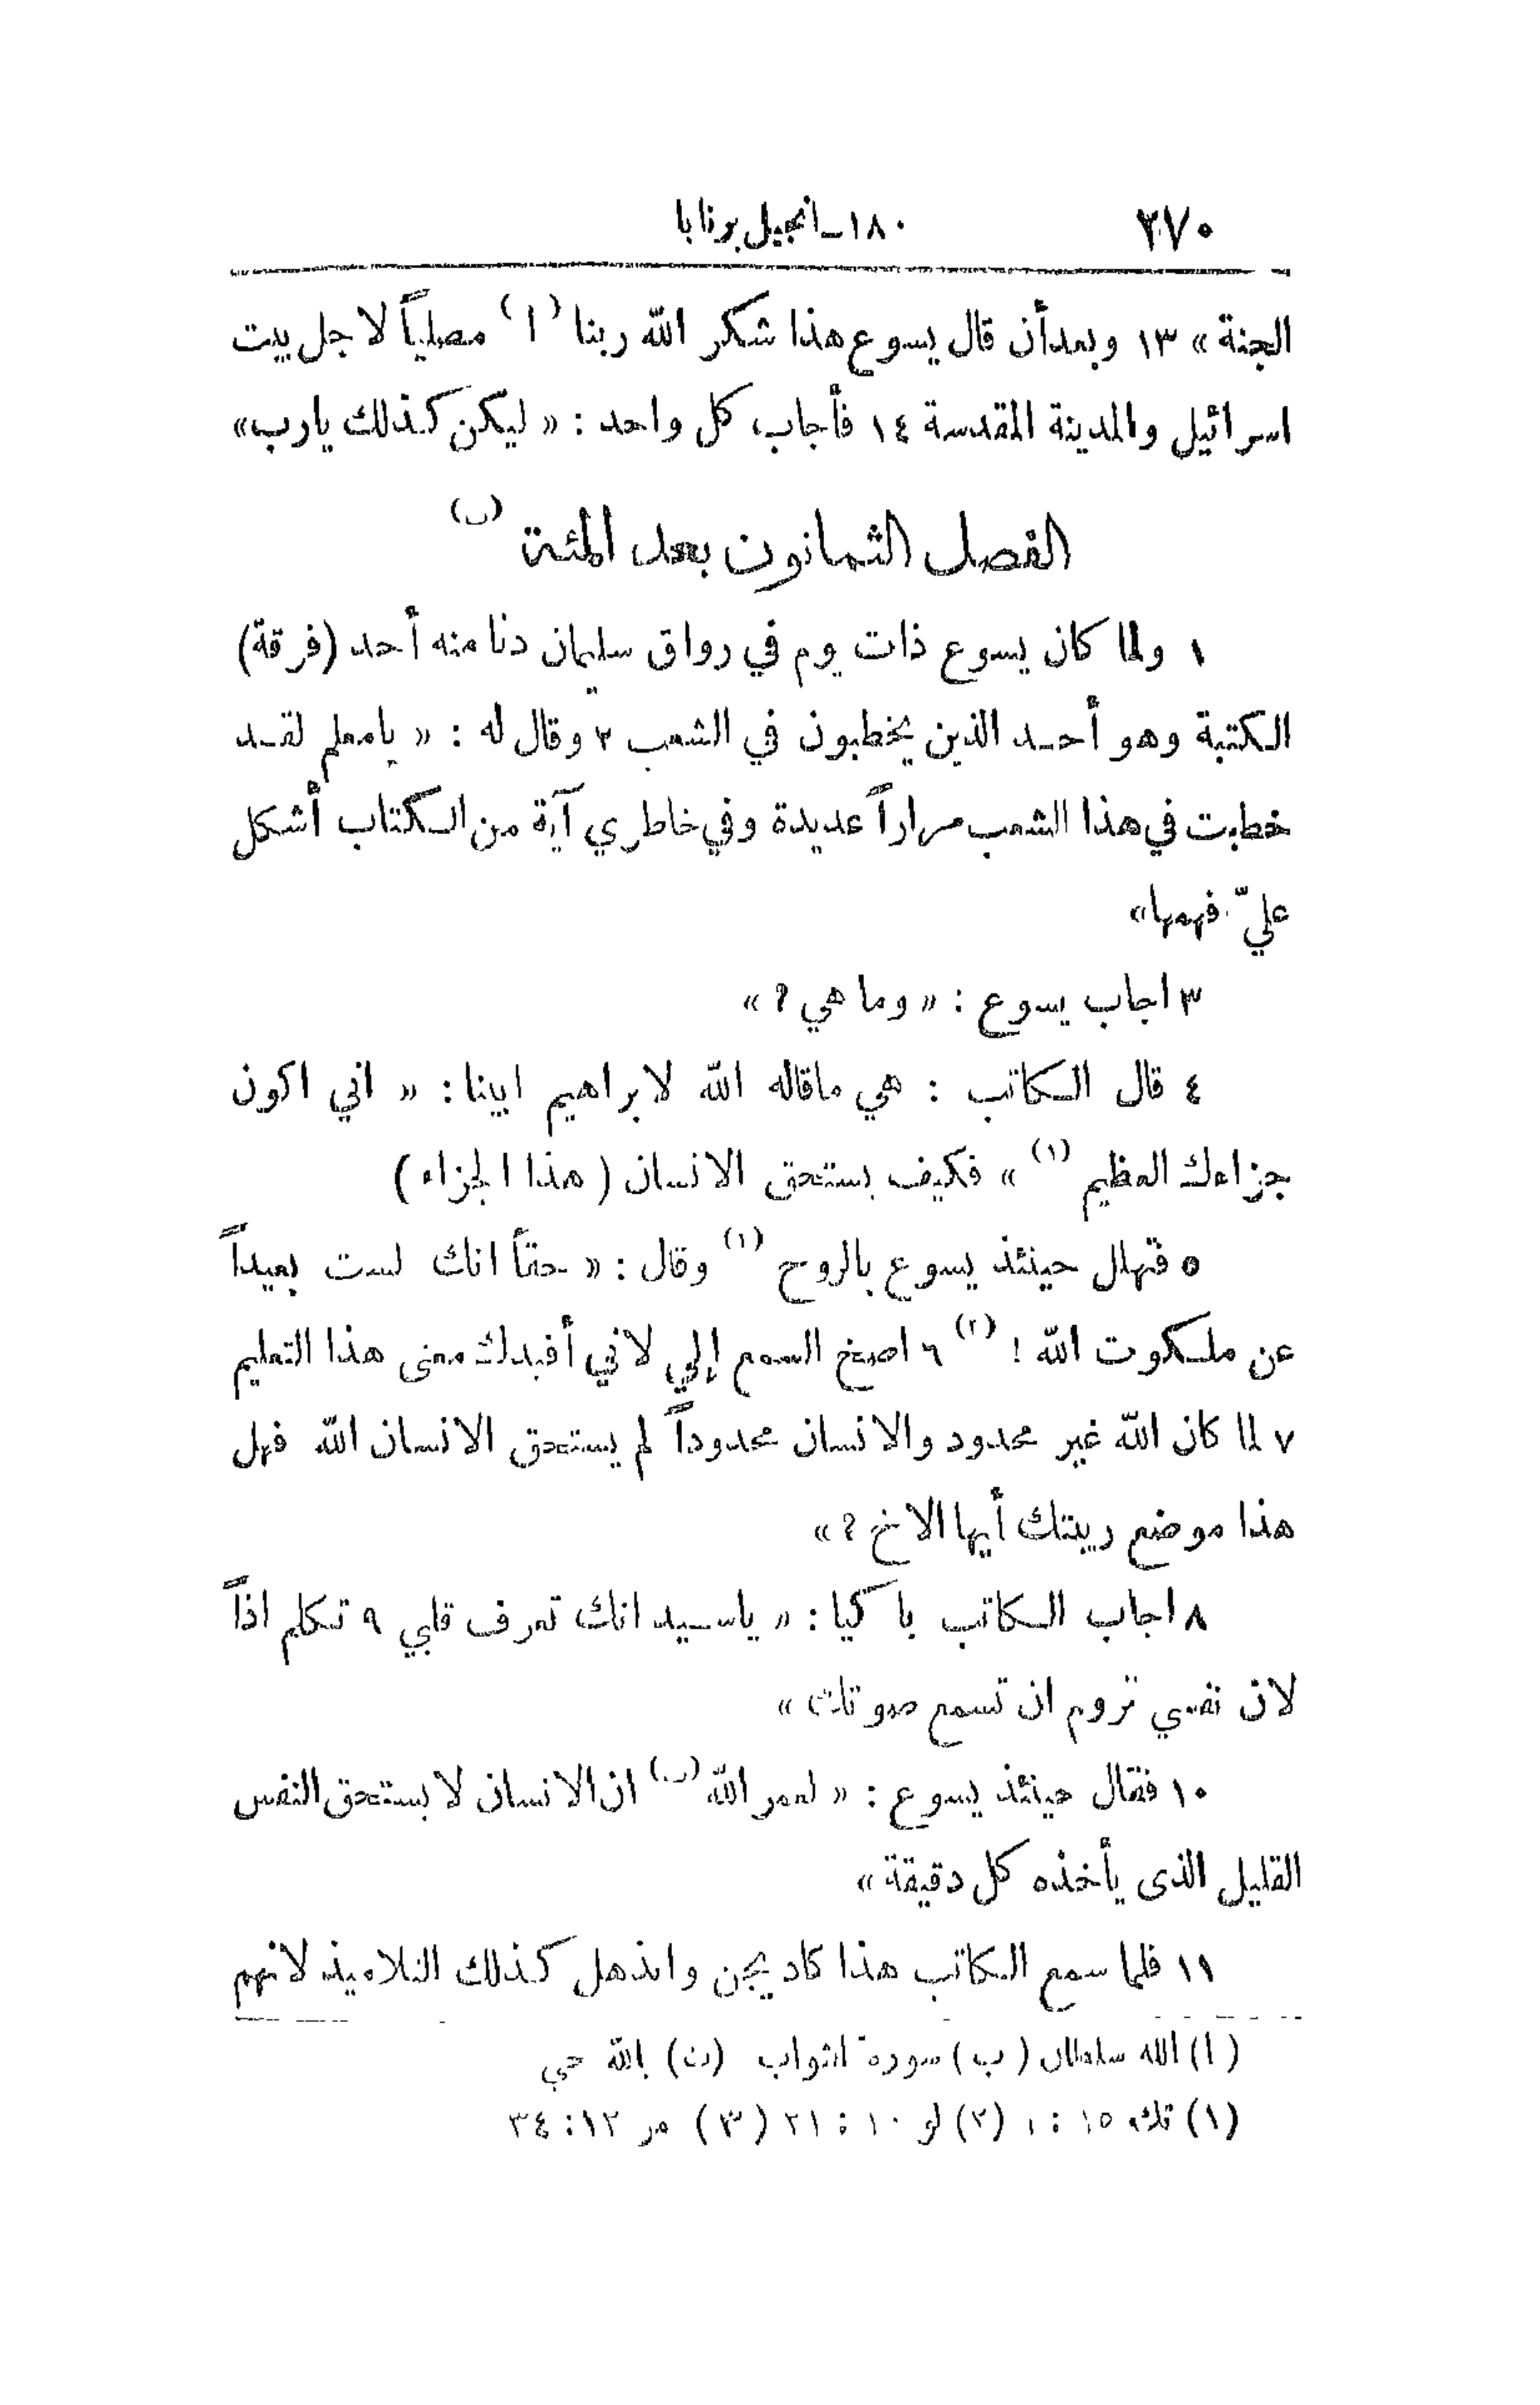 ٢٧٠ ١٨٠ ـ انجيل برنابا
الجنة » ١٣ وبعد أن قال يسوع هذا شكر الله ربنا (ا) مصلياً لاجل بيت
اسرائيل والمدينة المقدسة ١٤ فأجاب كل واحد : « ليكن كذلك يارب »
الفصل الثمانون بعد المئة (ب)
١ ولما كان يسوع ذات يوم في رواق سليمان دنا منه أحد (فرقة)
الكتبة وهو أحد الذين يخطبون في الشعب ٢ وقال له : « يامعلم لقد
خطبت في هذا الشعب مراراً عديدة وفي خاطري آية من الكتاب أشكل
عليّ فهمها»
٣ اجاب يسوع : « وما هي ؟ »
٤ قال الكاتب : هي ماقاله الله لابراهيم ابينا : « اني اكون
جزاءك العظيم (١) » فكيف يستحق الانسان ( هذا الجزاء )
٥ فتهلل حينئذ يسوع بالروح (١) وقال : « حقاً انك لست بعيداً
عن ملكوت الله ! (٢) ٦ اصغ السمع إلي لاني أفيدك معنى هذا التعليم
٧ لما كان الله غير محدود والانسان محدوداً لم يستحق الانسان الله فهل
هذا موضع ريبتك أيها الاخ ؟ »
٨ اجاب الكاتب باكيا : « ياسيد انك تعرف قلبي ٩ تكلم اذاً
لان نفسي تروم ان تسمع صوتك »
١٠ فقال حينئذ يسوع : « لعمر الله (ت) ان الانسان لا يستحق النفس
القليل الذى يأخذه كل دقيقة »
١١ فلما سمع الكاتب هذا كاد يجن وانذهل كذلك التلاميذ لانهم
(ا) الله سلطان (ب) سورة الثواب (ت) بالله حي
(١) تك ١٥ : ١ (٢) لو ١٠ : ٢١ (٣) مر ١٢ : ٣٤